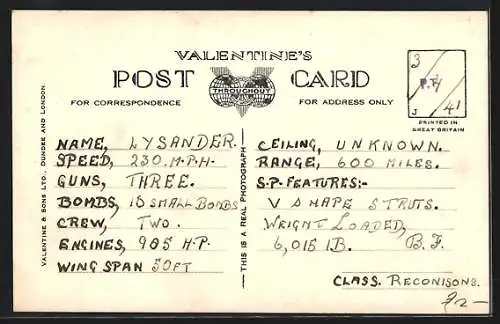 VALENTINE'S
POST CARD
THROUGHOUT
FOR CORRESPONDENCE
FOR ADDRESS ONLY
3
P.F/
3 41
PRINTED IN
GREAT BRITAIN
VALENTINE & SONS LTD., DUNDEE AND LONDON.
THIS IS A REAL PHOTOGRAPH
NAME, LYSANDER.
SPEED, 230. M.P.H.
GUNS, THREE.
BOMBS, 18 SMALL BOMBS
CREW, TWO.
ENGINES, 905 H.P.
WING SPAN 50FT
CEILING, UNKNOWN.
RANGE, 600 MILES.
S.P. FEATURES:-
V SHAPE STRUTS.
WEIGHT LOADED,
6,015 IB. B.F.
CLASS. RECONISONS.